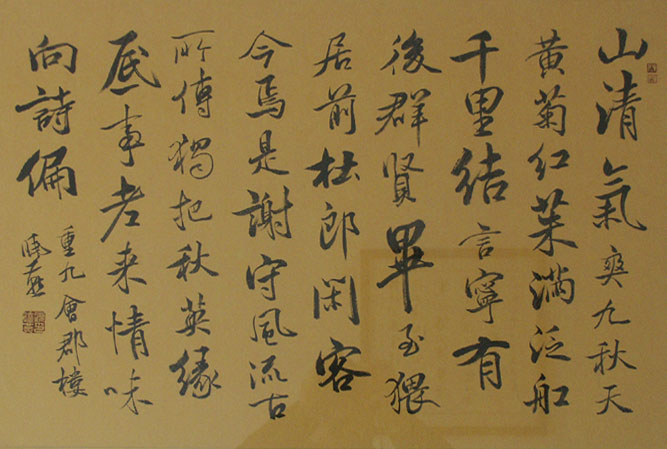 山清氣爽九秋天
黃菊紅茱滿泛船
千里結言寧有
後群賢畢至猥
居前杜郎閑客
今焉是謝守風流古
所傳獨把秋英緣
底事老来情味
向詩偏
重九會郡樓
曉燕